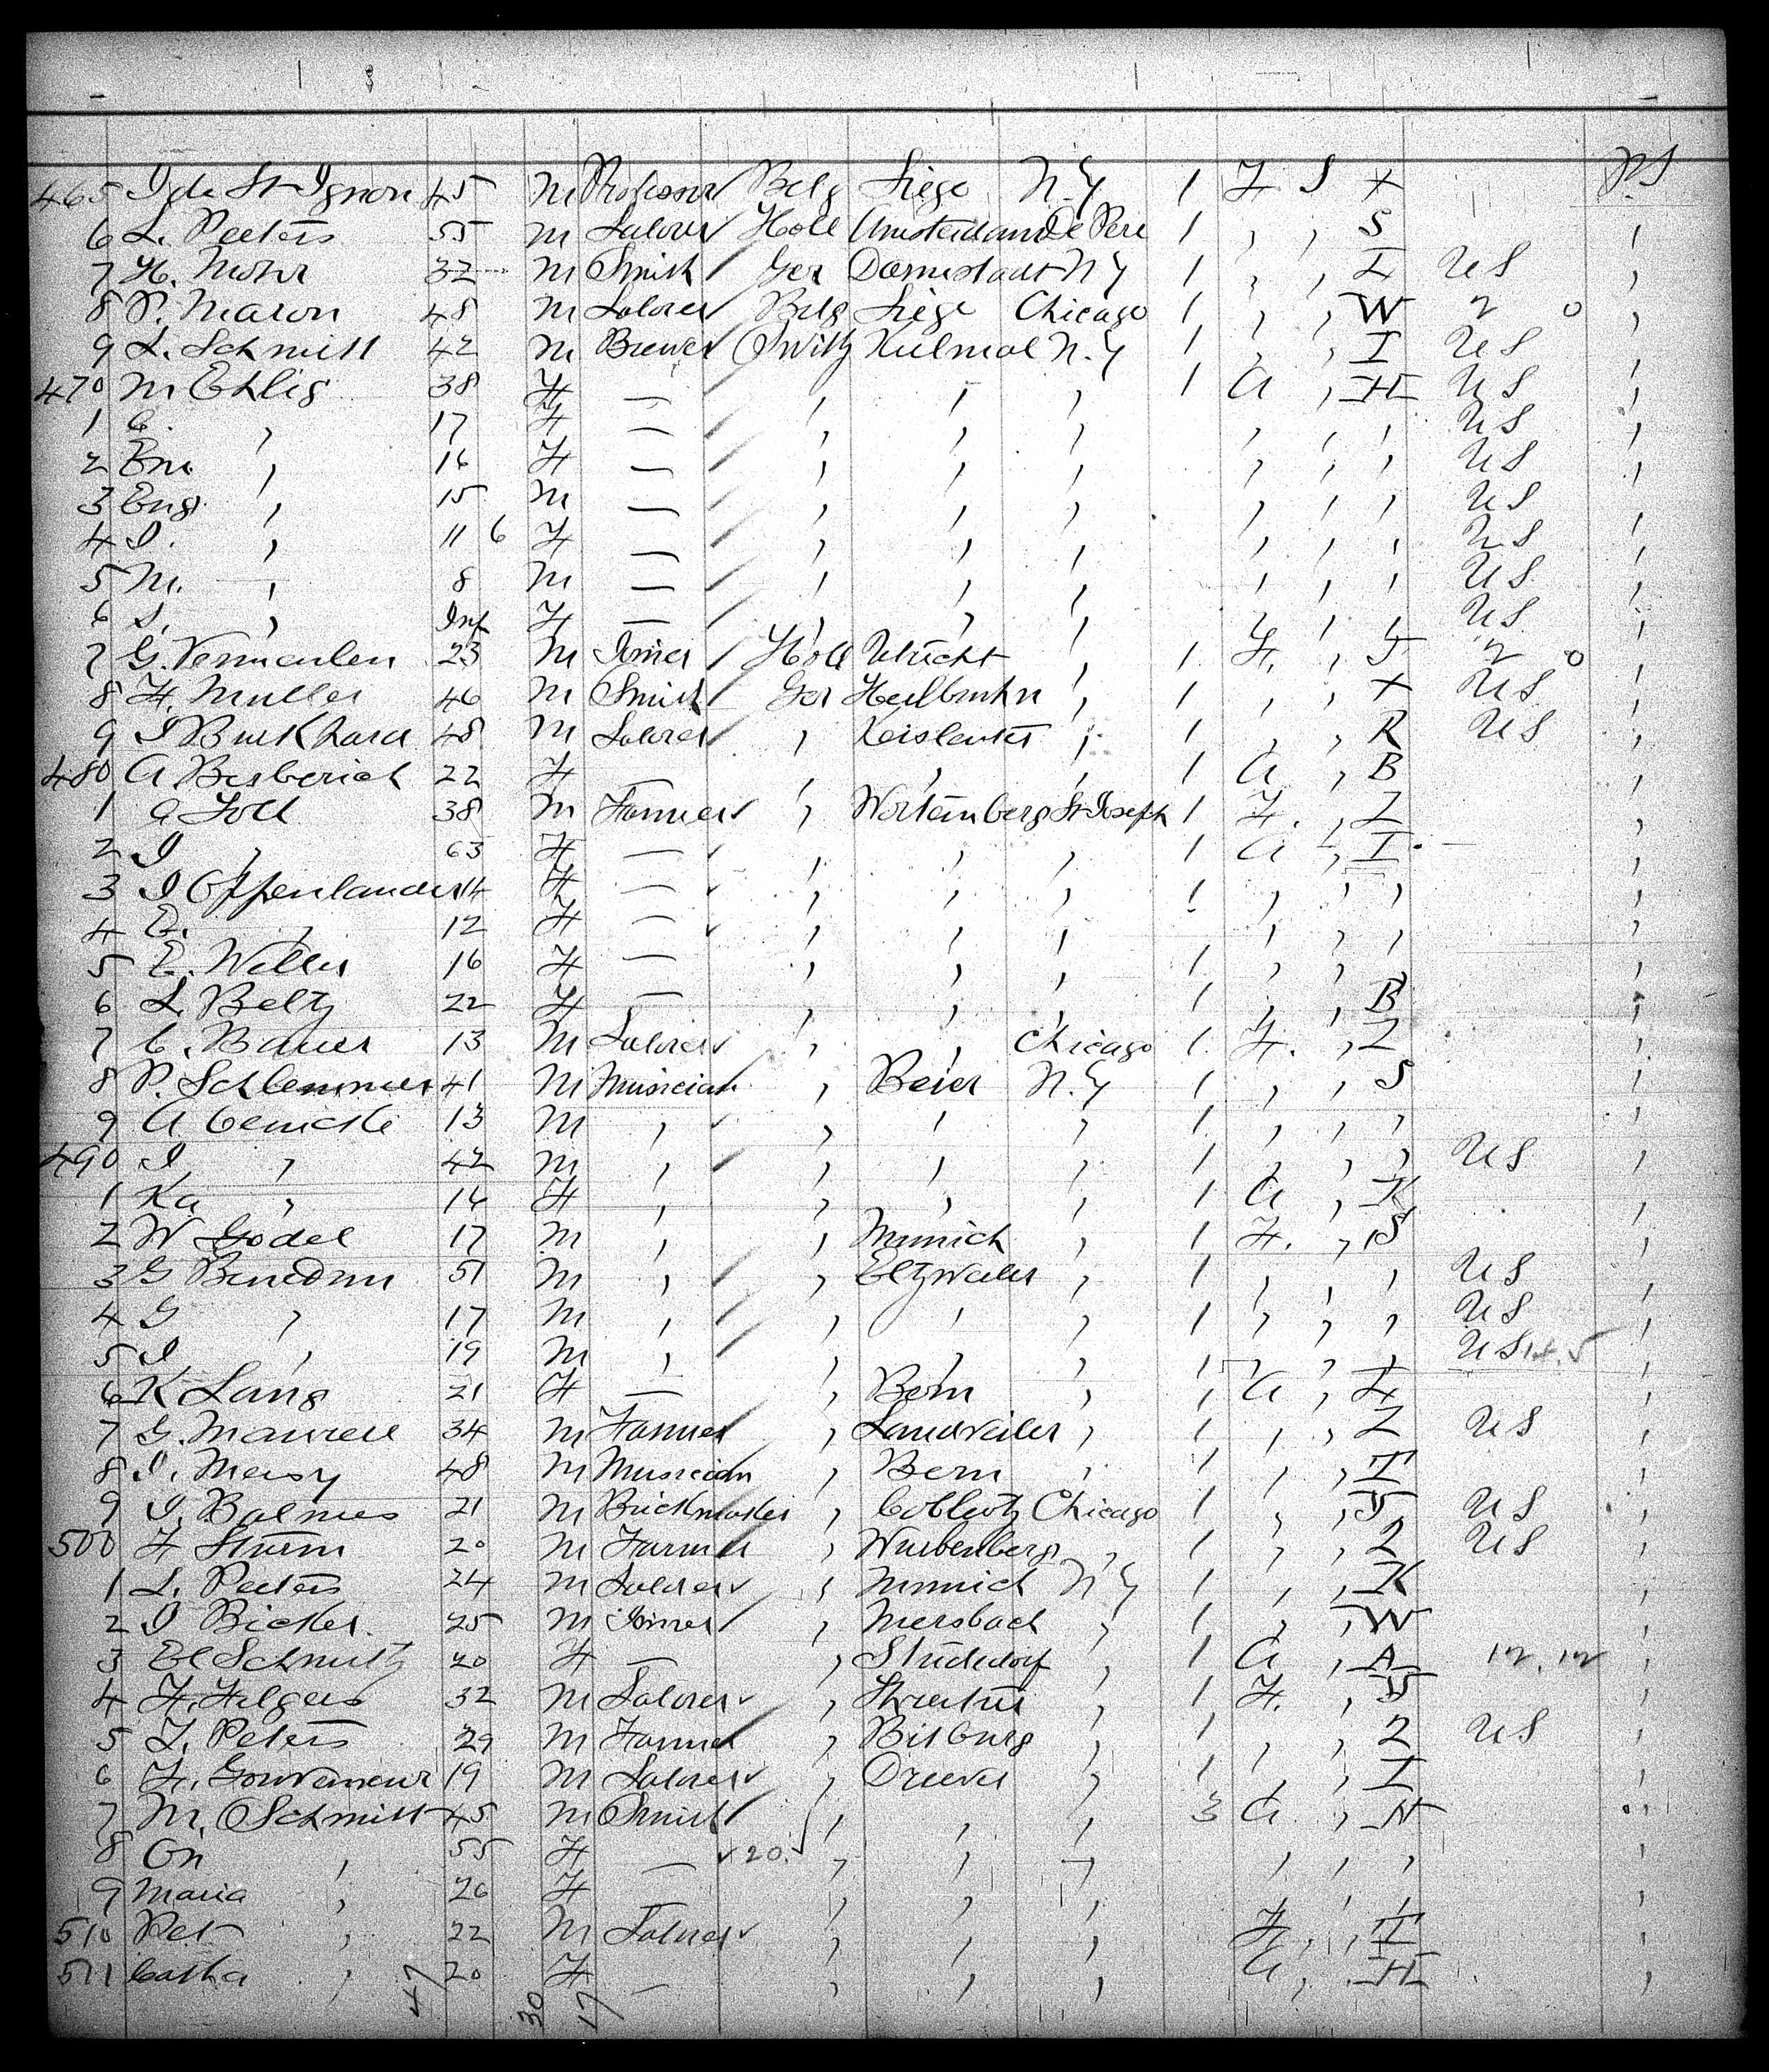 465 I de St Ignon 45 M Professor Belg Liege N.Y 1 F S X P.S
6 L. Peeters 55 M Laborer Holl Amsterdam De Pere 1 , , S ,
7 H. Mohr 32 M Smith Ger Darmstadt N Y 1 , , I US ,
8 P. Maron 48 M Laborer Belg Liege Chicago 1 , , W 2 0 ,
9 L. Schmitt 42 M Brewer Switz N.Y 1 , , I US ,
470 M Ehlig 38 F — , , , 1 A , H US ,
1 C. , 17 F — , , , , , , US ,
2 Em. , 16 F — , , , , , , US ,
3 Eug. , 15 M — , , , , , , US
4 I. , 11 6 F — , , , , , , US ,
5 M. , 8 M — , , , , , , US ,
6 S. , Inf F — , , , , , , US ,
7 G. Vermeulen 23 M Joiner Holl Utrecht , 1 F. , S 2 0 ,
8 F. Muller 46 M Smith Ger Heilbruhn , 1 , , X US ,
9 I Burkhard 48 M Laborer , , 1 , , R US ,
480 A Bisberich 22 F , , , 1 A , B ,
1 G Foll 38 M Farmer , Wortemberg St Joseph 1 F. , Z ,
2 I , 63 F — , , , 1 A , I ,
3 I Oppenlander 14 F — , , , 1 , , , ,
4 E. , 12 F — , , , , , , ,
5 E. Weller 16 F — , , , 1 , , , ,
6 L. Beltz 22 F — , , , 1 , , B ,
7 C. Bauer 13 M Laborer , , Chicago 1 F. , Z ,
8 P. Schlemmer 41 M Musician , Beier N.Y 1 , , S ,
9 A 13 M , , , , 1 , , , ,
490 I , 42 M , , , , 1 , , , US ,
1 Ka , 16 F , , , , 1 A , K ,
2 W Godel 17 M , , Munich , 1 F. , S ,
3 G 51 M , , Eltzweiler , 1 , , , US ,
4 G , 17 M , , , , 1 , , , US ,
5 I , 19 M , , , , 1 , , , US ,
6 K Lang 21 F — , Bern , , A , I ,
7 G. Maurell 34 M Farmer , Landweiler , 1 , , Z US ,
8 I. Meisy 48 M Musician , Bern , 1 , , I ,
9 I. Balmes 21 M Brickmaker , Coblentz Chicago 1 , , S US ,
500 F Sturm 20 M Farmer , Wurbenberg , 1 , , Z US ,
1 L. Peeters 24 M Laborer , Munich N Y 1 , , K ,
2 I Bicker. 25 M Joiner , Mersbach , 1 , , W ,
3 El Schmitz 20 F — , , 1 A , A ,
4 F. Filgers 32 M Laborer , , 1 F. , S ,
5 I. Peters 29 M Farmer , Bitburg , 1 , , Z US ,
6 F. Gouverneur 19 M Laborer , , 1 , , I ,
7 M. Schmitt 45 M Smith , , , 3 A , H ,
8 , 55 F — 20 , , , , , , ,
9 Maria , 26 F , , , , , , ,
510 Pet , 22 M Laborer , , , F , I ,
511 Catha , 20 F — , , , A , H ,
47 30 17